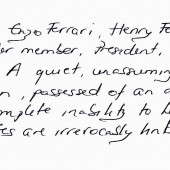 Enzo Ferrari, Henry F
member, President,
A quiet, unassuming
, possessed of an
complete inability to
are irrevocably